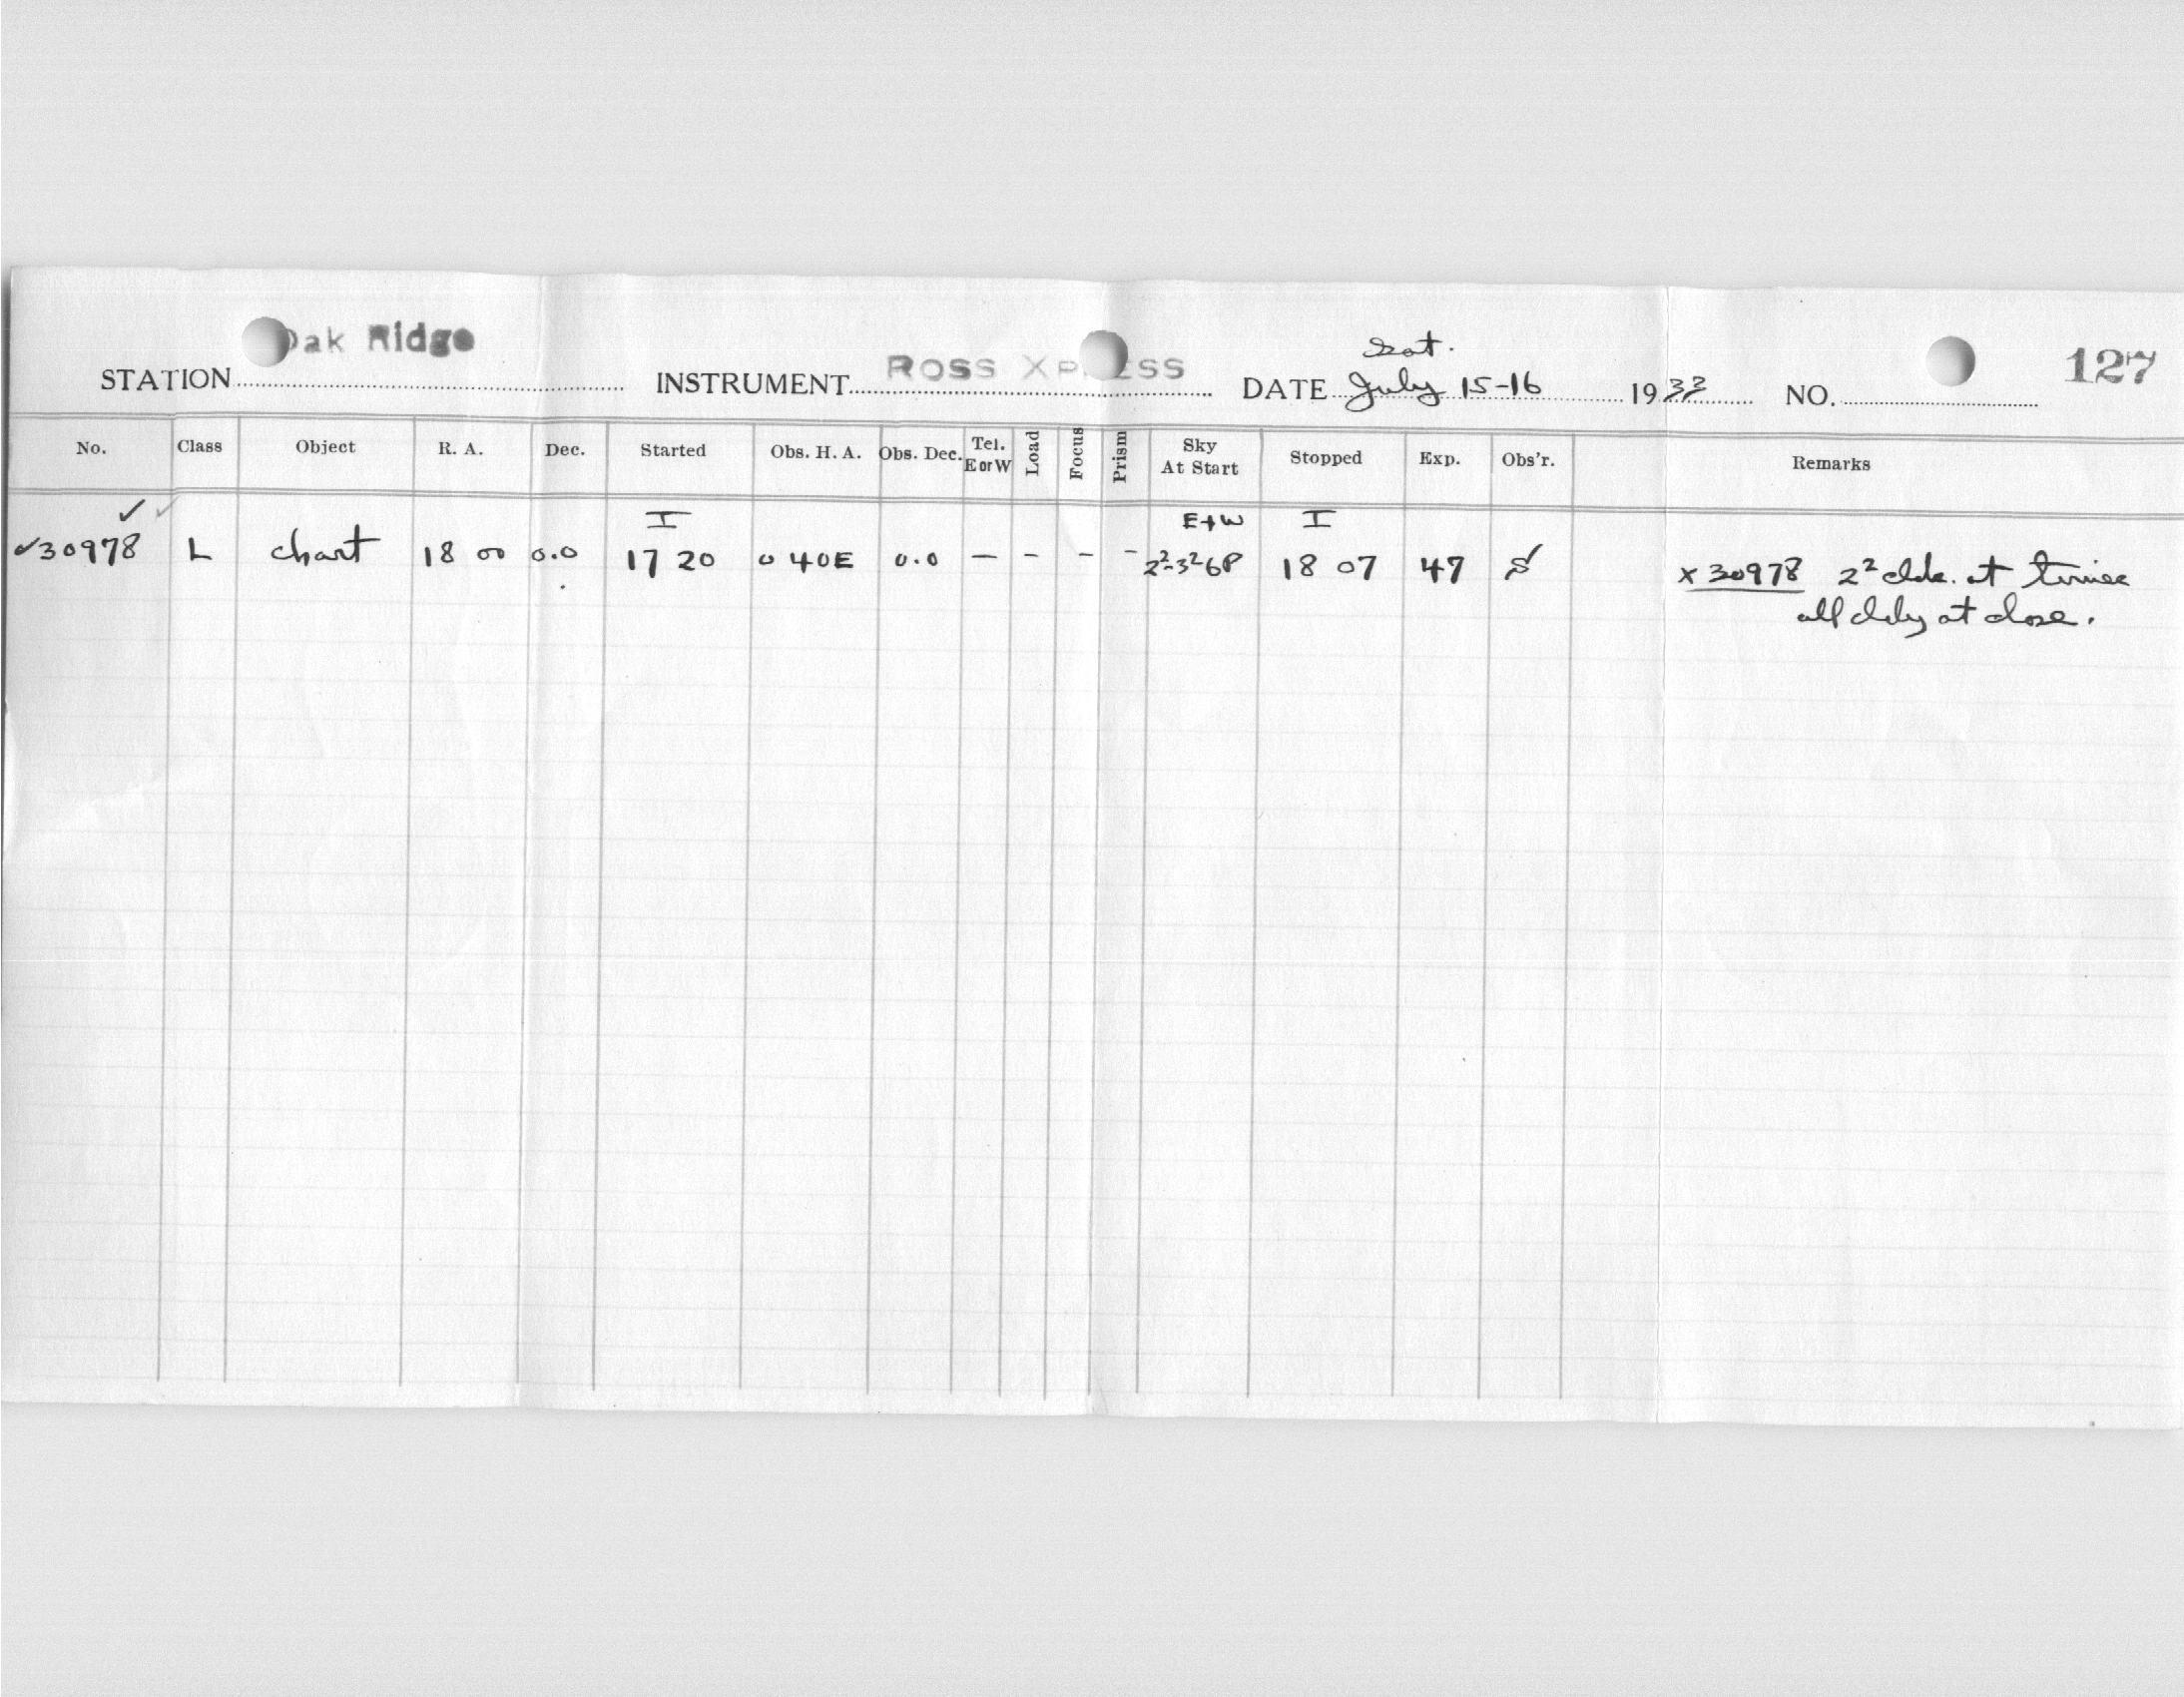 STATION Oak Ridge INSTRUMENT ROSS XPRESS DATE Sat. July 15-16 1933 NO. 127
No. Class Object R. A. Dec. Started Obs. H. A. Obs. Dec. Tel. E or W Load Focus Prism Sky At Start Stopped Exp. Obs'r. Remarks
I E+W I
✓30978 L chart 18 00 0.0 17 20 0 40E 0.0 — - - - 2²-3²6P 18 07 47 S x 30978 2² clds. at times
all cldy at close.